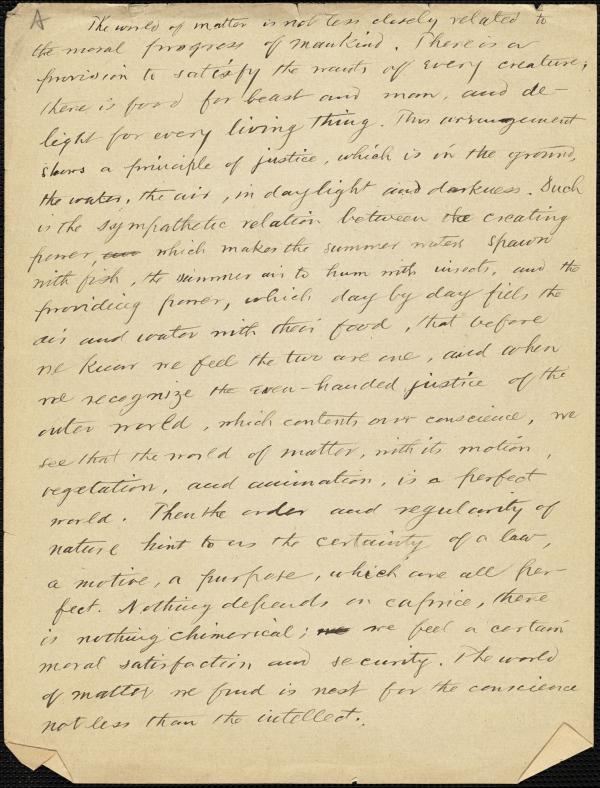 A
The world of matter is not less closely related to
the moral progress of mankind. There is a
provision to satisfy the wants of every creature;
there is food for beast and man, and de-
light for every living thing. This arrangement
shows a principle of justice, which is in the ground,
the water, the air, in daylight and darkness. Such
is the sympathetic relation between the creating
power, which makes the summer waters spawn
with fish, the summer air to hum with insects, and the
providing power, which day by day fills the
air and water with their food, that before
we know we feel the two are one, and when
we recognize the even-handed justice of the
outer world, which contents our conscience, we
see that the world of matter, with its motion,
vegetation, and animation, is a perfect
world. Then the order and regularity of
nature hint to us the certainty of a law,
a motive, a purpose, which are all per-
fect. Nothing depends on caprice, there
is nothing chimerical; we feel a certain
moral satisfaction and security. The world
of matter we find is nest for the conscience
not less than the intellect.